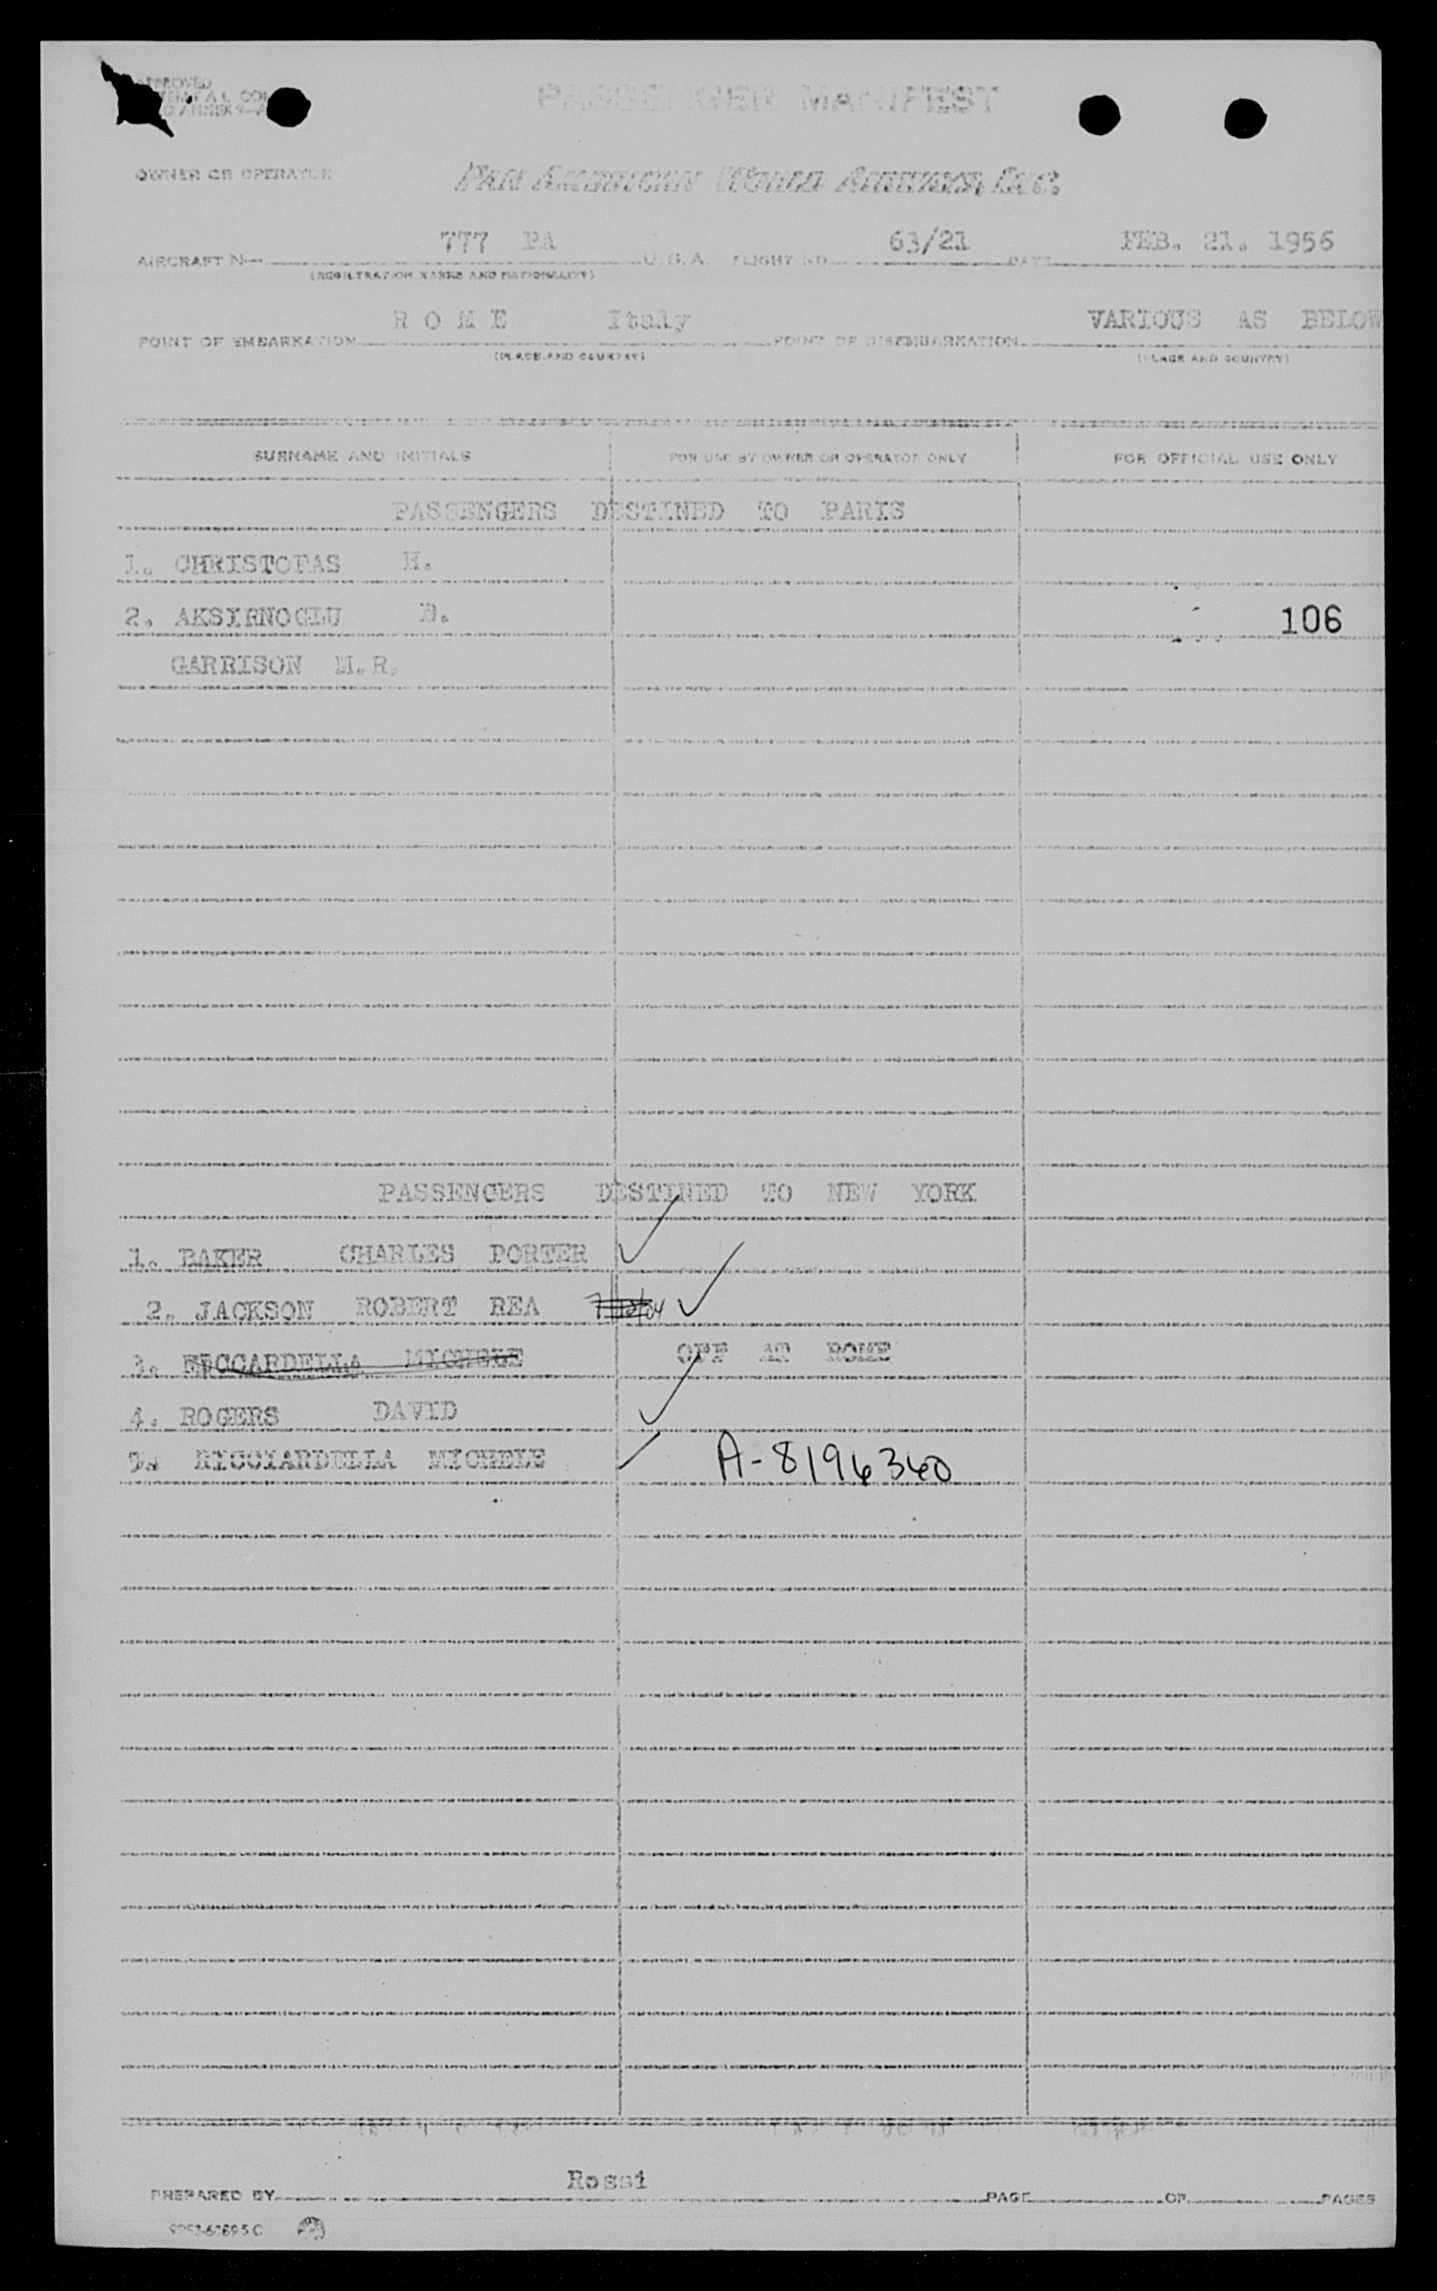 APPROVED
PASSENGER MANIFEST
OWNER OR OPERATOR PAN AMERICAN WORLD AIRWAYS, INC.
AIRCRAFT N— 777 PA U.S.A. FLIGHT NO. 63/21 DATE FEB. 21. 1956
(REGISTRATION MARKS AND NATIONALITY)
POINT OF EMBARKATION R O M E Italy POINT OF DISEMBARKATION VARIOUS AS BELOW
(PLACE AND COUNTRY) (PLACE AND COUNTRY)
SURNAME AND INITIALS FOR USE BY OWNER OR OPERATOR ONLY FOR OFFICIAL USE ONLY
PASSENGERS DESTINED TO PARIS
1. CHRISTOFAS H.
2. AKSIRNOGLU 106
GARRISON M.R.
PASSENGERS DESTINED TO NEW YORK
1. BAKER CHARLES PORTER
2. JACKSON ROBERT REA
3. MICHELE OFF AT ROME
4. ROGERS DAVID
5. RICCIARDELLA MICHELE A-8196360
Rossi
PREPARED BY PAGE OF PAGES